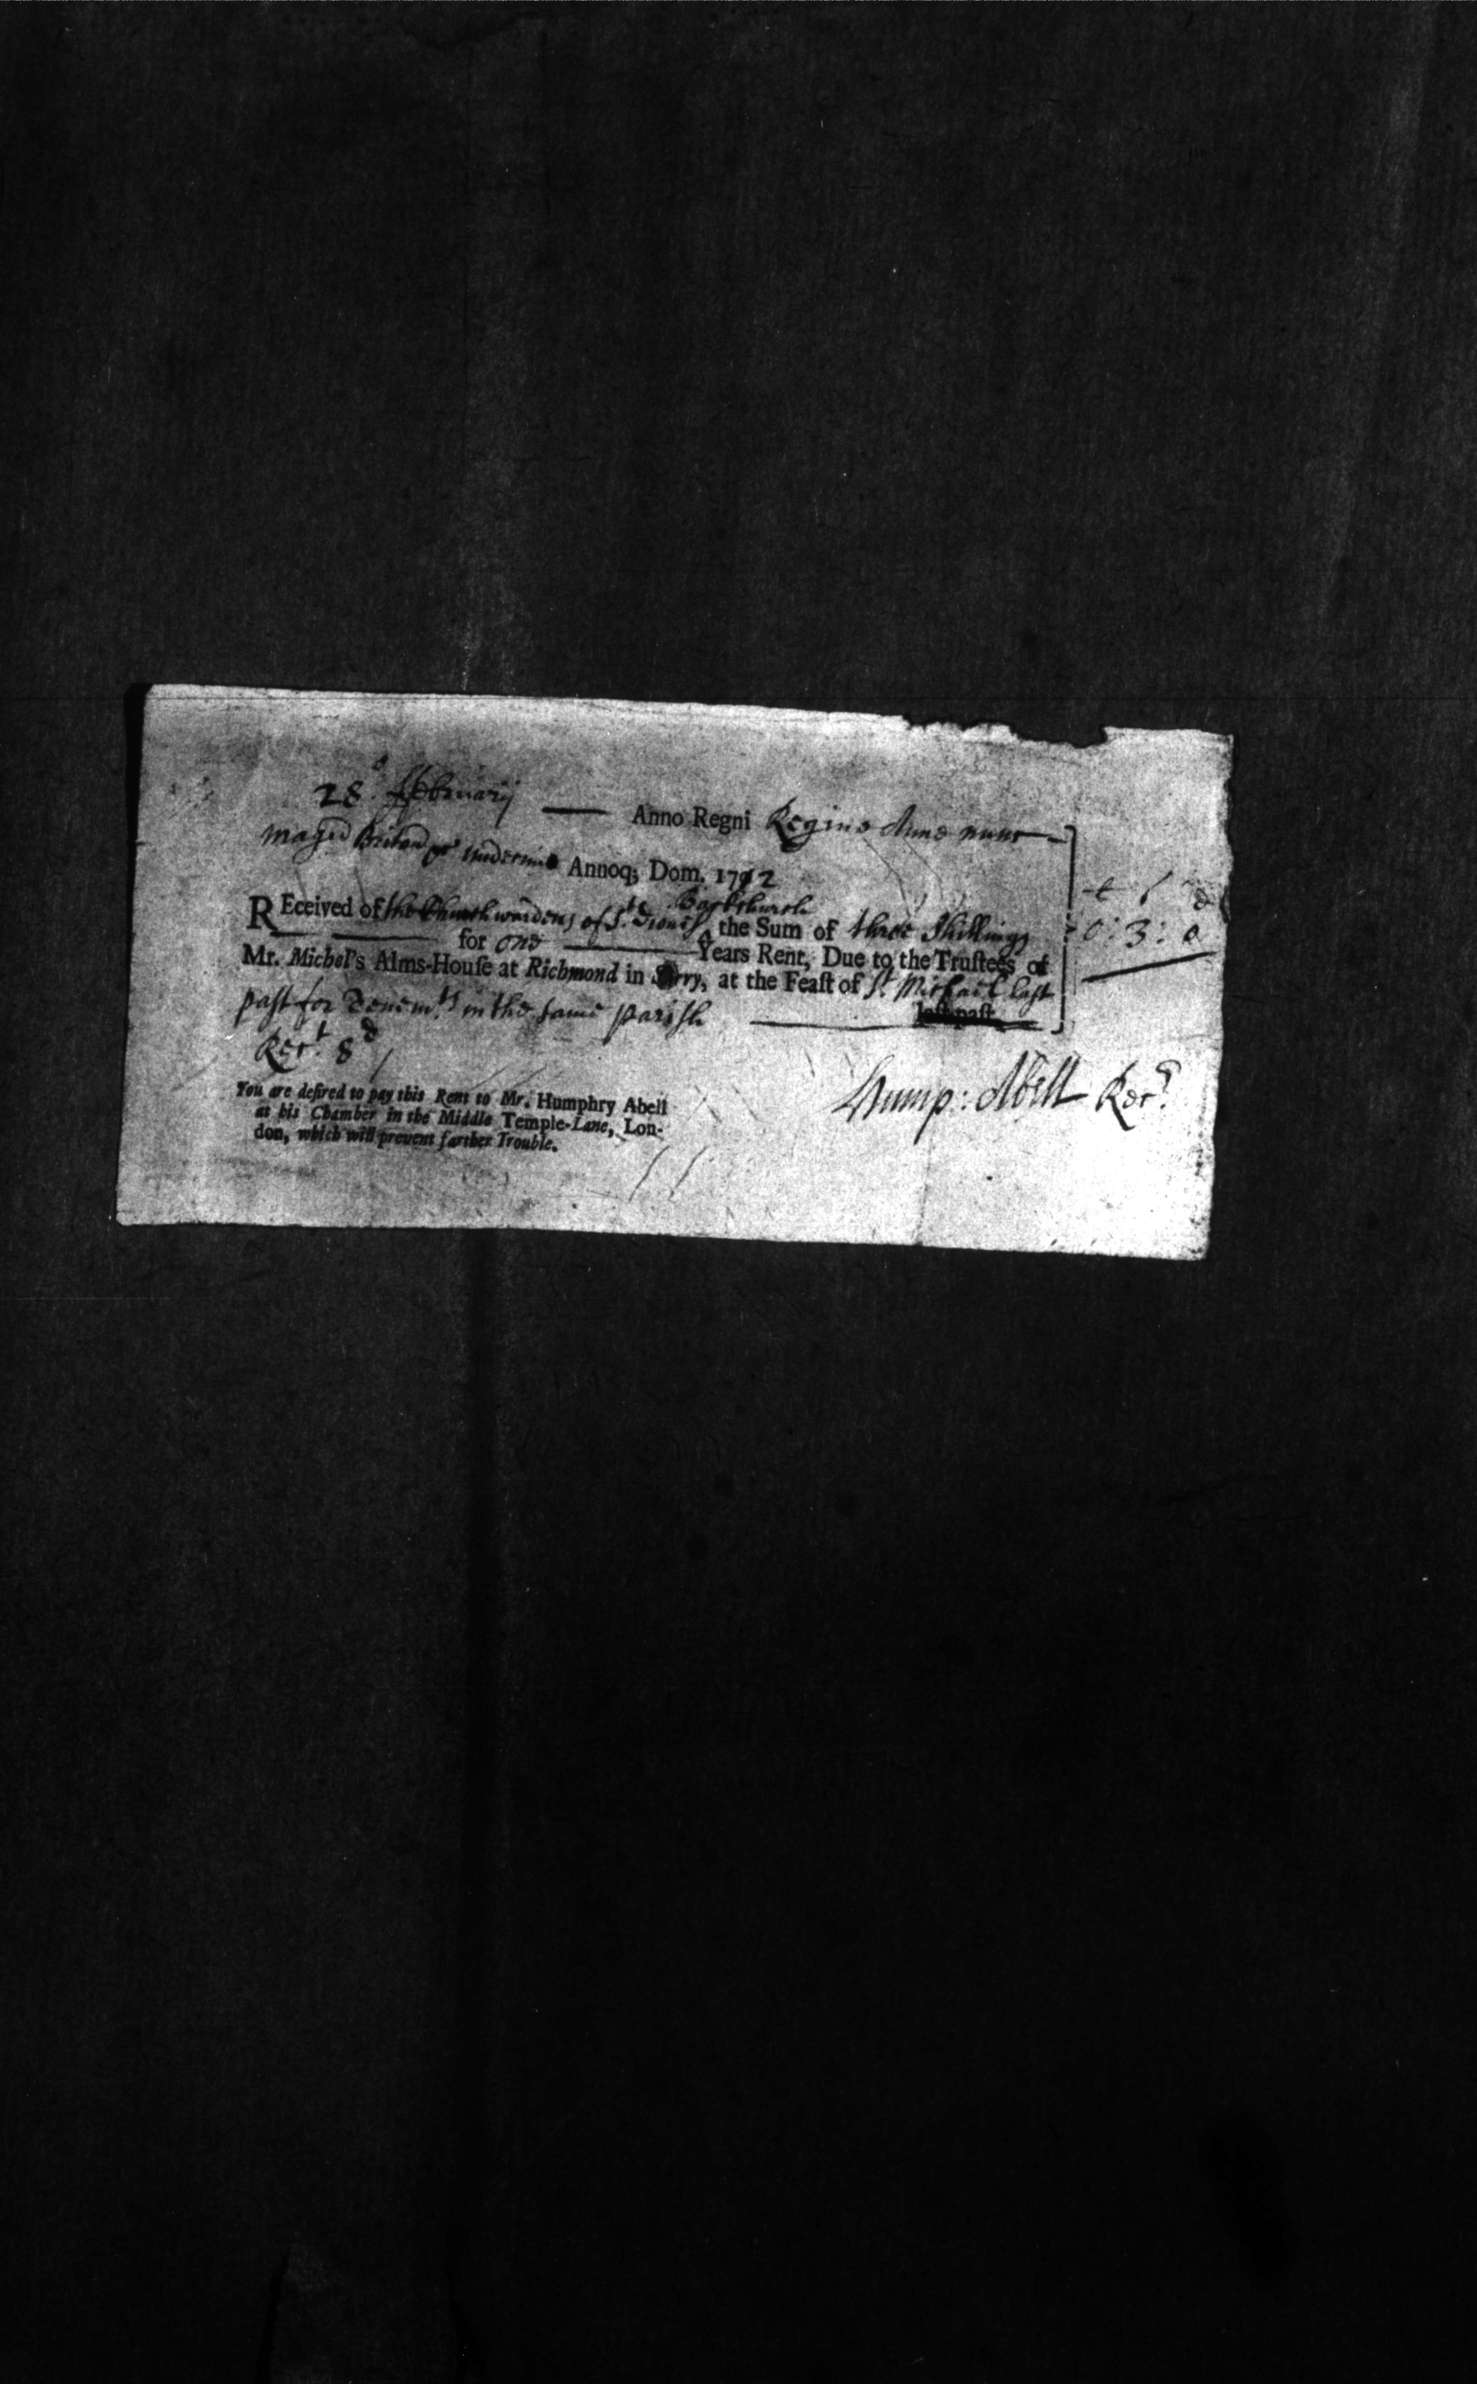 28o. ffebruarij — Anno Regni Regine Anne nunc
Magn Britan &c undecimo Annoq; Dom. 1712
Backchurch
REceived of the Churchwardens of St. Dionis the Sum of three Shillings
for one Years Rent, Due to the Truſtees of
Mr. Michel's Alms-Houſe at Richmond in Surry, at the Feaſt of St. Michael last
past for Tenemts in the same parish laſt paſt
£ s d
0: 3: 0
Rect. 8d
Hump: Abell Recr.
You are deſired to pay this Rent to Mr. Humphry Abell
at his Chamber in the Middle Temple-Lane, Lon-
don, which will prevent farther Trouble.